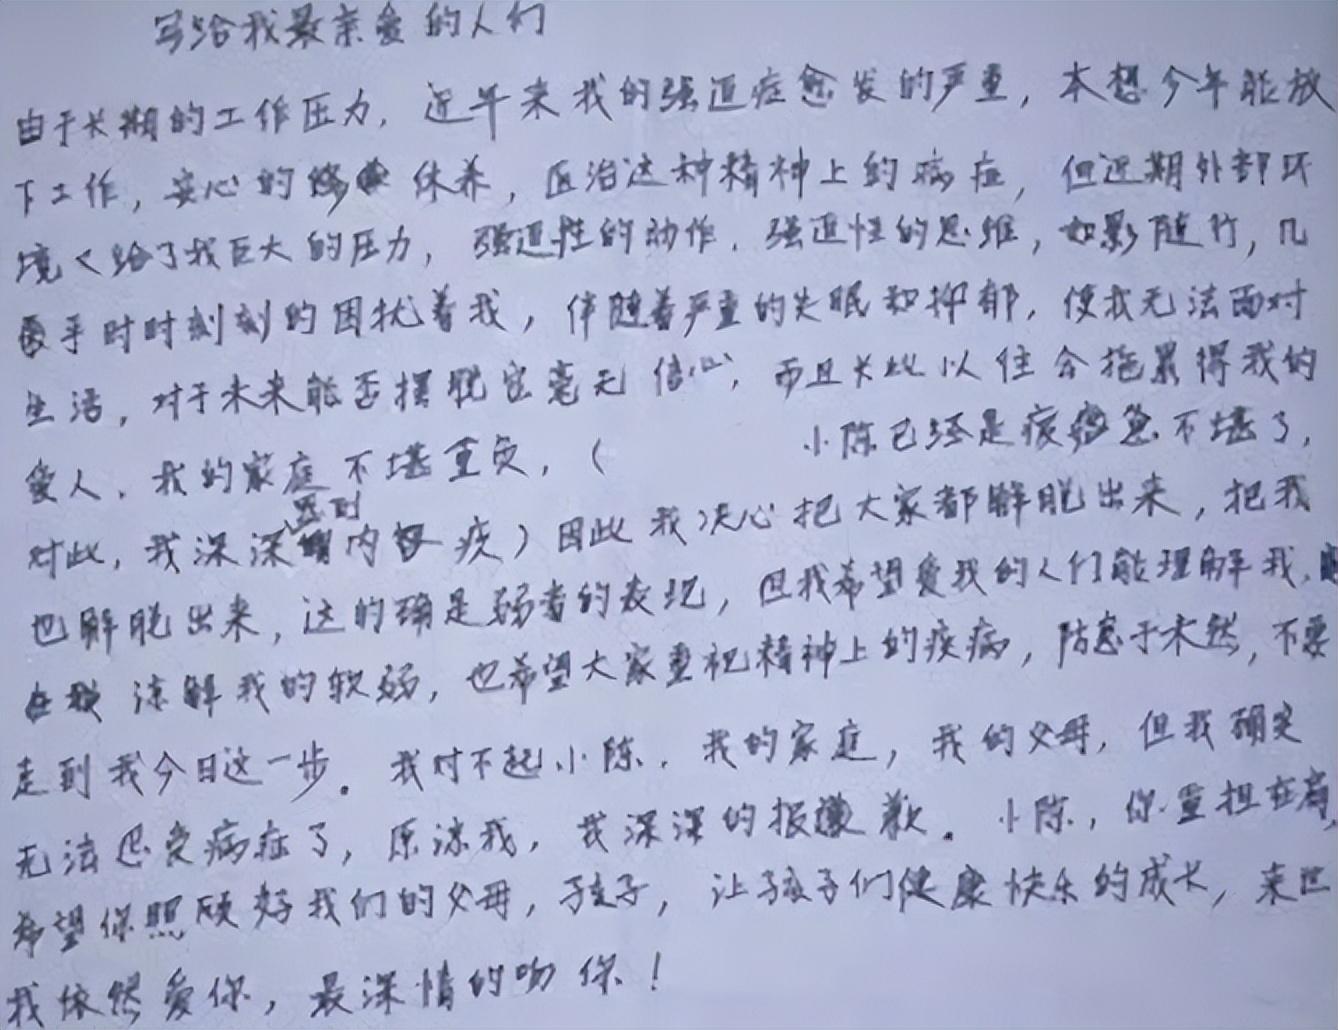 写给我最亲爱的人们
由于长期的工作压力，近年来我的强迫症愈发的严重，本想今年能放
下工作，安心的休养，医治这种精神上的病症，但近期外部环
境给了我巨大的压力，强迫性的动作，强迫性的思维，如影随行，几
乎时时刻刻的困扰着我，伴随着严重的失眠和抑郁，使我无法面对
生活，对于未来能否摆脱它毫无信心，而且长此以往会拖累得我的
爱人、我的家庭不堪重负，（小陈已经是疲惫不堪了，
对此，我深深感到内疚）因此我决心把大家都解脱出来，把我
也解脱出来，这的确是弱者的表现，但我希望爱我的人们能理解我，
谅解我的软弱，也希望大家重视精神上的疾病，防患于未然，不要
走到我今日这一步。我对不起小陈，我的家庭，我的父母，但我确实
无法忍受病症了，原谅我，我深深的报歉。小陈，你重担在肩，
希望你照顾好我们的父母，孩子，让孩子们健康快乐的成长，来世
我依然爱你，最深情的吻你！